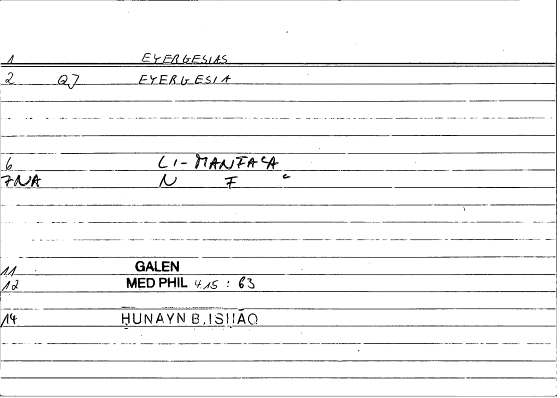 1 EYERGESIAS
2 QJ EYERGESIA
6 LI-MANFAʿA
7NA N F ʿ
11 GALEN
12 MED PHIL 4,15 : 63
14 ḤUNAYN B.ISḤĀQ